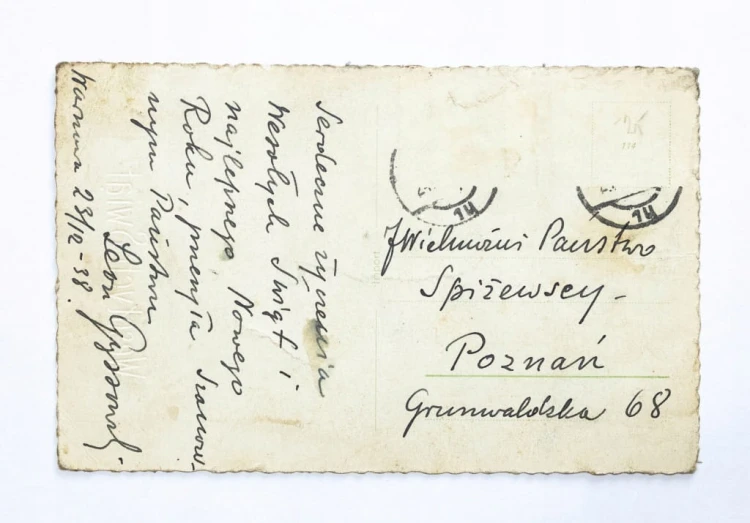 Serdeczne życzenia
Wesołych Świąt i
najlepszego Nowego
Roku, przesyła Szanow-
nym Państwu
Leon
23/12-38.
JWielmożni Państwo
Spiżewscy-
Poznań
Grunwaldzka 68
14
14